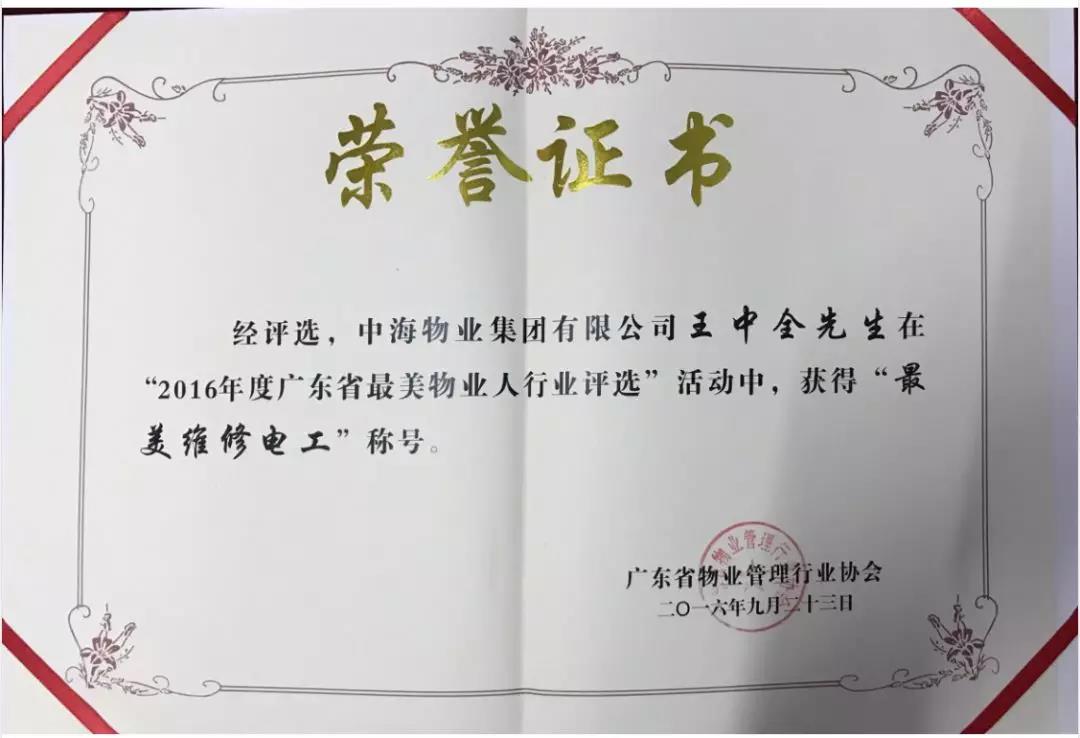 荣誉证书
经评选，中海物业集团有限公司王中全先生在
“2016年度广东省最美物业人行业评选”活动中，获得“最
美维修电工”称号。
物业管理行
广东省物业管理行业协会
二〇一六年九月二十三日